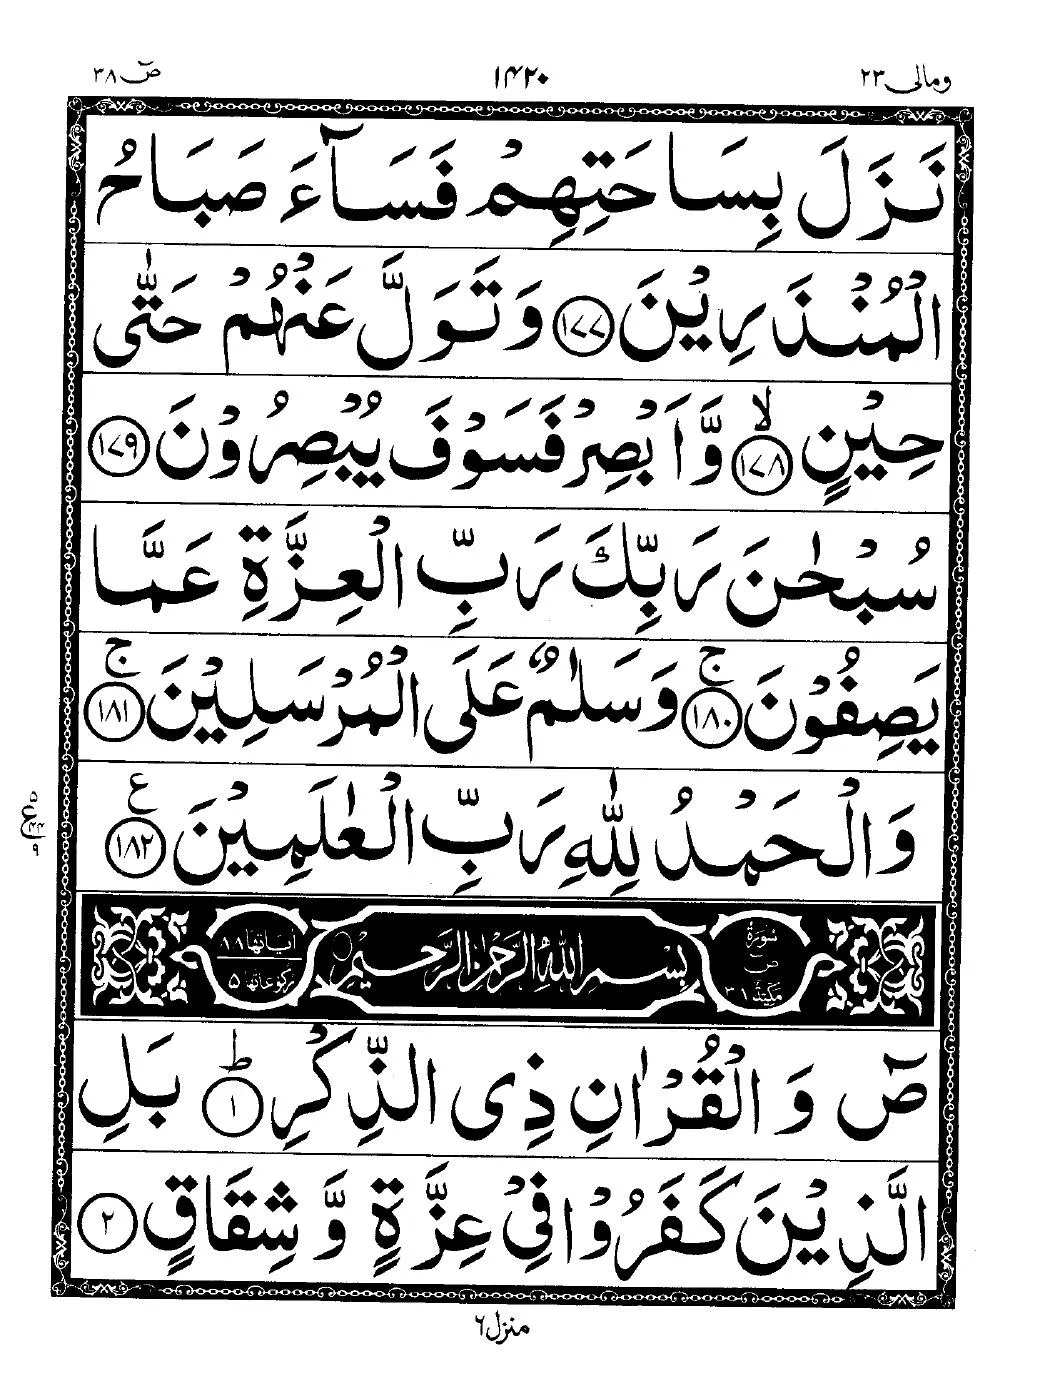 ومالی ٢٣
١٤٢٠
صٓ ٣٨
نَزَلَ بِسَاحَتِهِمْ فَسَآءَ صَبَاحُ
الْمُنْذَرِيْنَ ١٧٧ وَتَوَلَّ عَنْهُمْ حَتّٰى
حِيْنٍ ١٧٨ ۙ وَّاَبْصِرْ فَسَوْفَ يُبْصِرُوْنَ ١٧٩
سُبْحٰنَ رَبِّكَ رَبِّ الْعِزَّةِ عَمَّا
يَصِفُوْنَ ١٨٠ ۚ وَسَلٰمٌ عَلَى الْمُرْسَلِيْنَ ١٨١ ۚ
وَالْحَمْدُ لِلّٰهِ رَبِّ الْعٰلَمِيْنَ ١٨٢ ع
٥ ع ٤٤ ٩
سورة ص مكية
بِسْمِ اللّٰهِ الرَّحْمٰنِ الرَّحِيْمِ
اٰیاتها ٨٨
رکوعاتها ٥
صٓ وَالْقُرْاٰنِ ذِى الذِّكْرِ ١ ؕ بَلِ
الَّذِيْنَ كَفَرُوْا فِيْ عِزَّةٍ وَّشِقَاقٍ ٢
منزل ٦